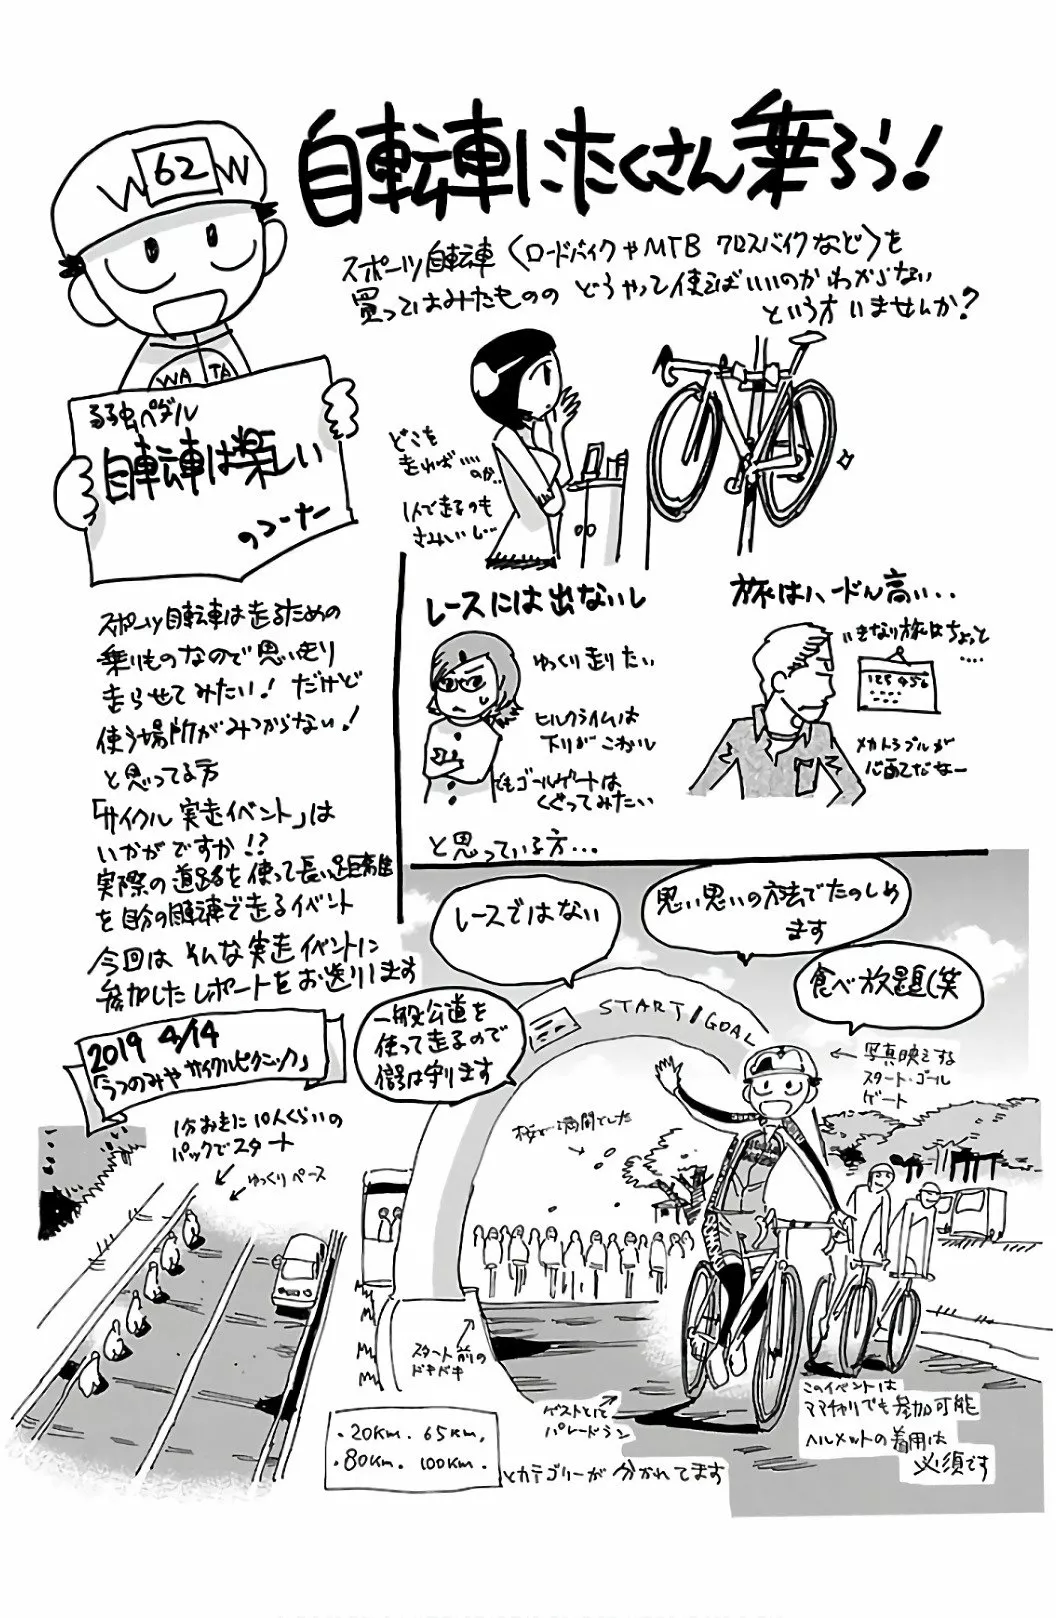 自転車にたくさん乗ろう!
62
WATA
弱虫ペダル
自転車は楽しい
のコーナー
スポーツ自転車〈ロードバイクやMTB クロスバイクなど〉を
買ってはみたものの どうやって使えばいいのかわからない
という方いませんか?
どこを
走れば....
のか..
1人で走るのも
さみしいし…
レースには出ないし
ゆっくり走りたい
ヒルクライムは
下りがこわいし
でもゴールゲートは
くぐってみたい
旅はハードル高い...
いきなり旅はちょっと
.....
123 456
メカトラブルが
心配だなー
と思っている方...
スポーツ自転車は走るための
乗りものなので思い切り
走らせてみたい! だけど
使う場所がみつからない!
と思ってる方
「サイクル実走イベント」は
いかがですか!?
実際の道路を使って長い距離
を自分の自転車で走るイベント
今回は そんな実走イベントに
参加したレポートをお送りします
2019 4/14
「うつのみやサイクルピクニック」
レースではない
思い思いの方法でたのしめ
ます
食べ放題(笑
一般公道を
使って走るので
信号は守ります
START/GOAL
写真映えする
スタート・ゴール
ゲート
桜が満開でした
1分おきに10人くらいの
パックでスタート
ゆっくりペース
スタート前の
ドキドキ
ゲストとして
パレードラン
このイベントは
ママチャリでも参加可能
ヘルメットの着用は
必須です
・20Km. 65Km.
・80Km. 100Km.
とカテゴリーが分かれてます